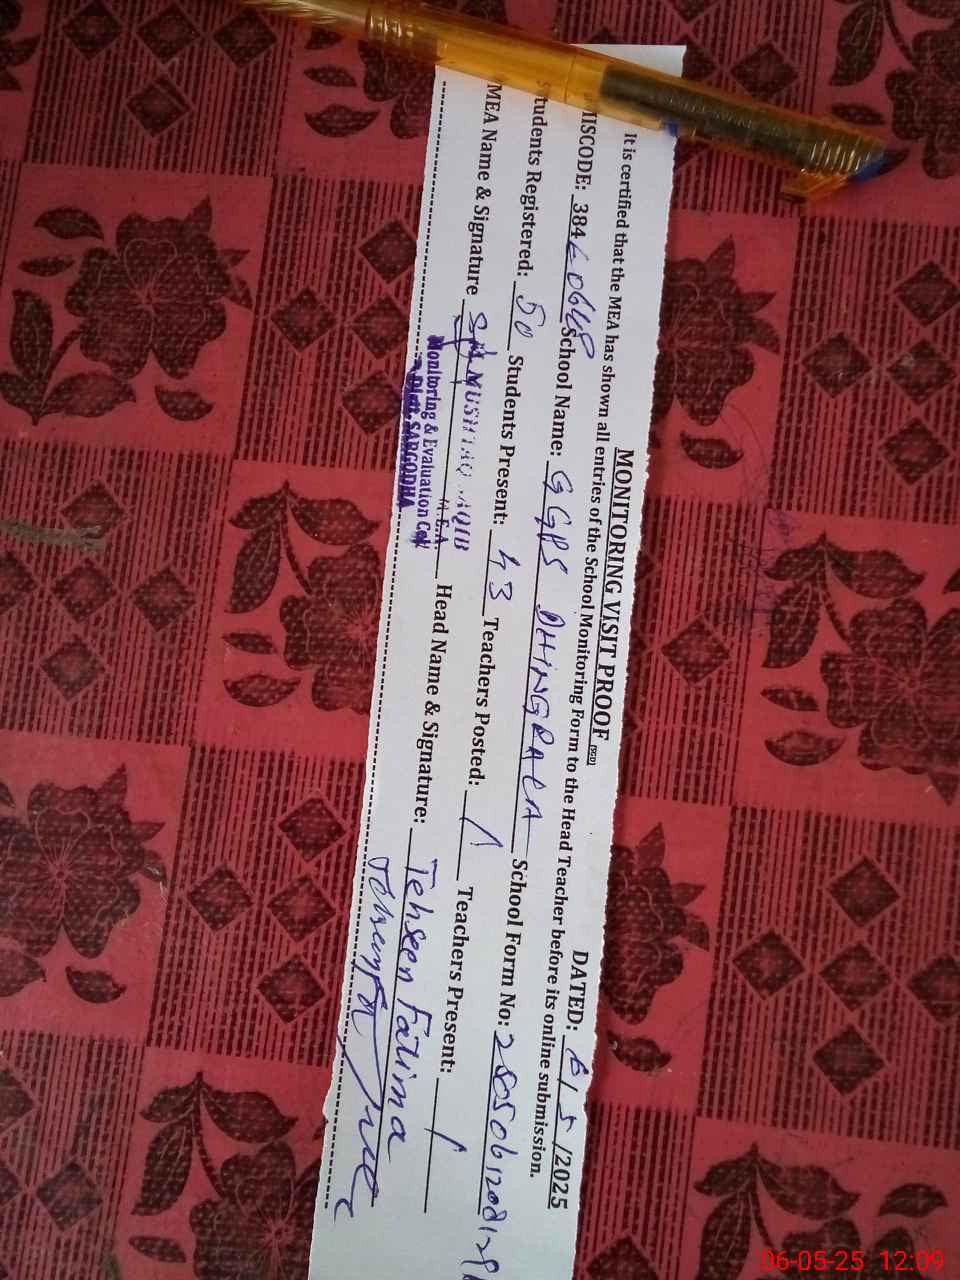 MONITORING VISIT PROOF (SGD) DATED: 6/5/2025
It is certified that the MEA has shown all entries of the School Monitoring Form to the Head Teacher before its online submission.
MISCODE: 384 School Name: GGPS DHINGRACA School Form No:
Students Registered: 50 Students Present: 43 Teachers Posted: 1 Teachers Present: 1
MEA Name & Signature MUSHTAQ SAQIB Head Name & Signature: Tehseen Fatima
M.E.A
Monitoring & Evaluation Cell
Distt. SARGODHA
06-05-25 12:09